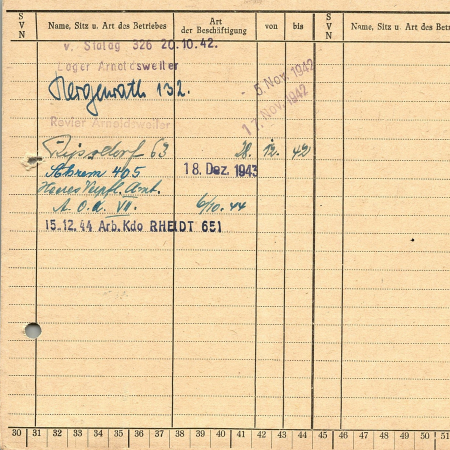 S V N
Name, Sitz u. Art des Betriebes
Art der Beschäftigung
von
bis
S V N
Name, Sitz u. Art des Betri
v. Stalag 326 20.10.42.
Lager Arnoldsweiler
- 5. Nov. 1942
Mergenrath 132.
17. Nov. 1942
Revier Arnoldsweiler
63 28. 12. 42
405 18. Dez. 1943
Heeres Verpfl. Amt.
A. O. K. VII. 6/10. 44
15.12.44 Arb.Kdo RHEIDT 651
30 31 32 33 34 35 36 37 38 39 40 41 42 43 44 45 46 47 48 49 50 51